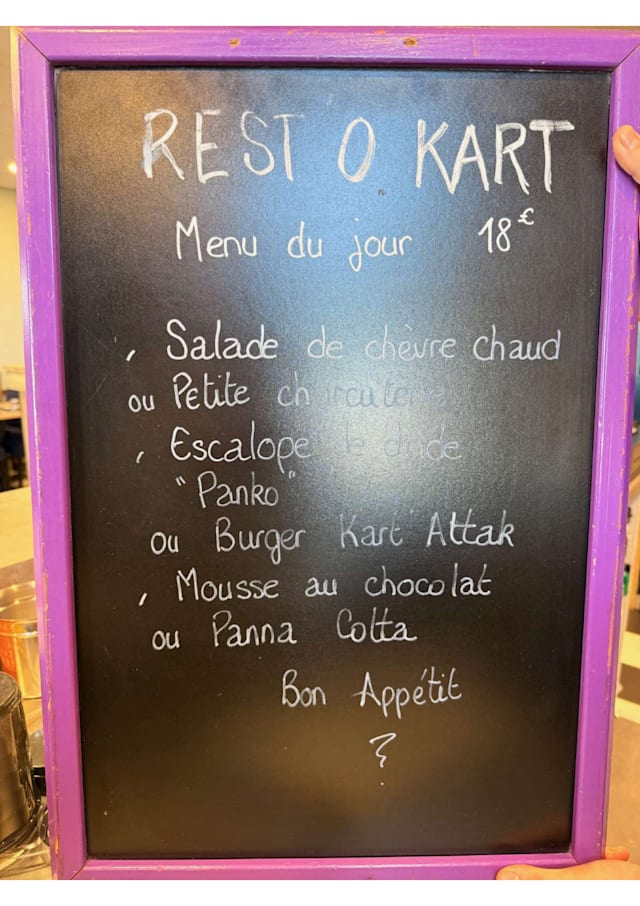 REST O KART
Menu du jour 18€
, Salade de chèvre chaud
ou Petite charcuterie
, Escalope de dinde
"Panko"
ou Burger Kart'Attak
, Mousse au chocolat
ou Panna Cotta
Bon Appétit